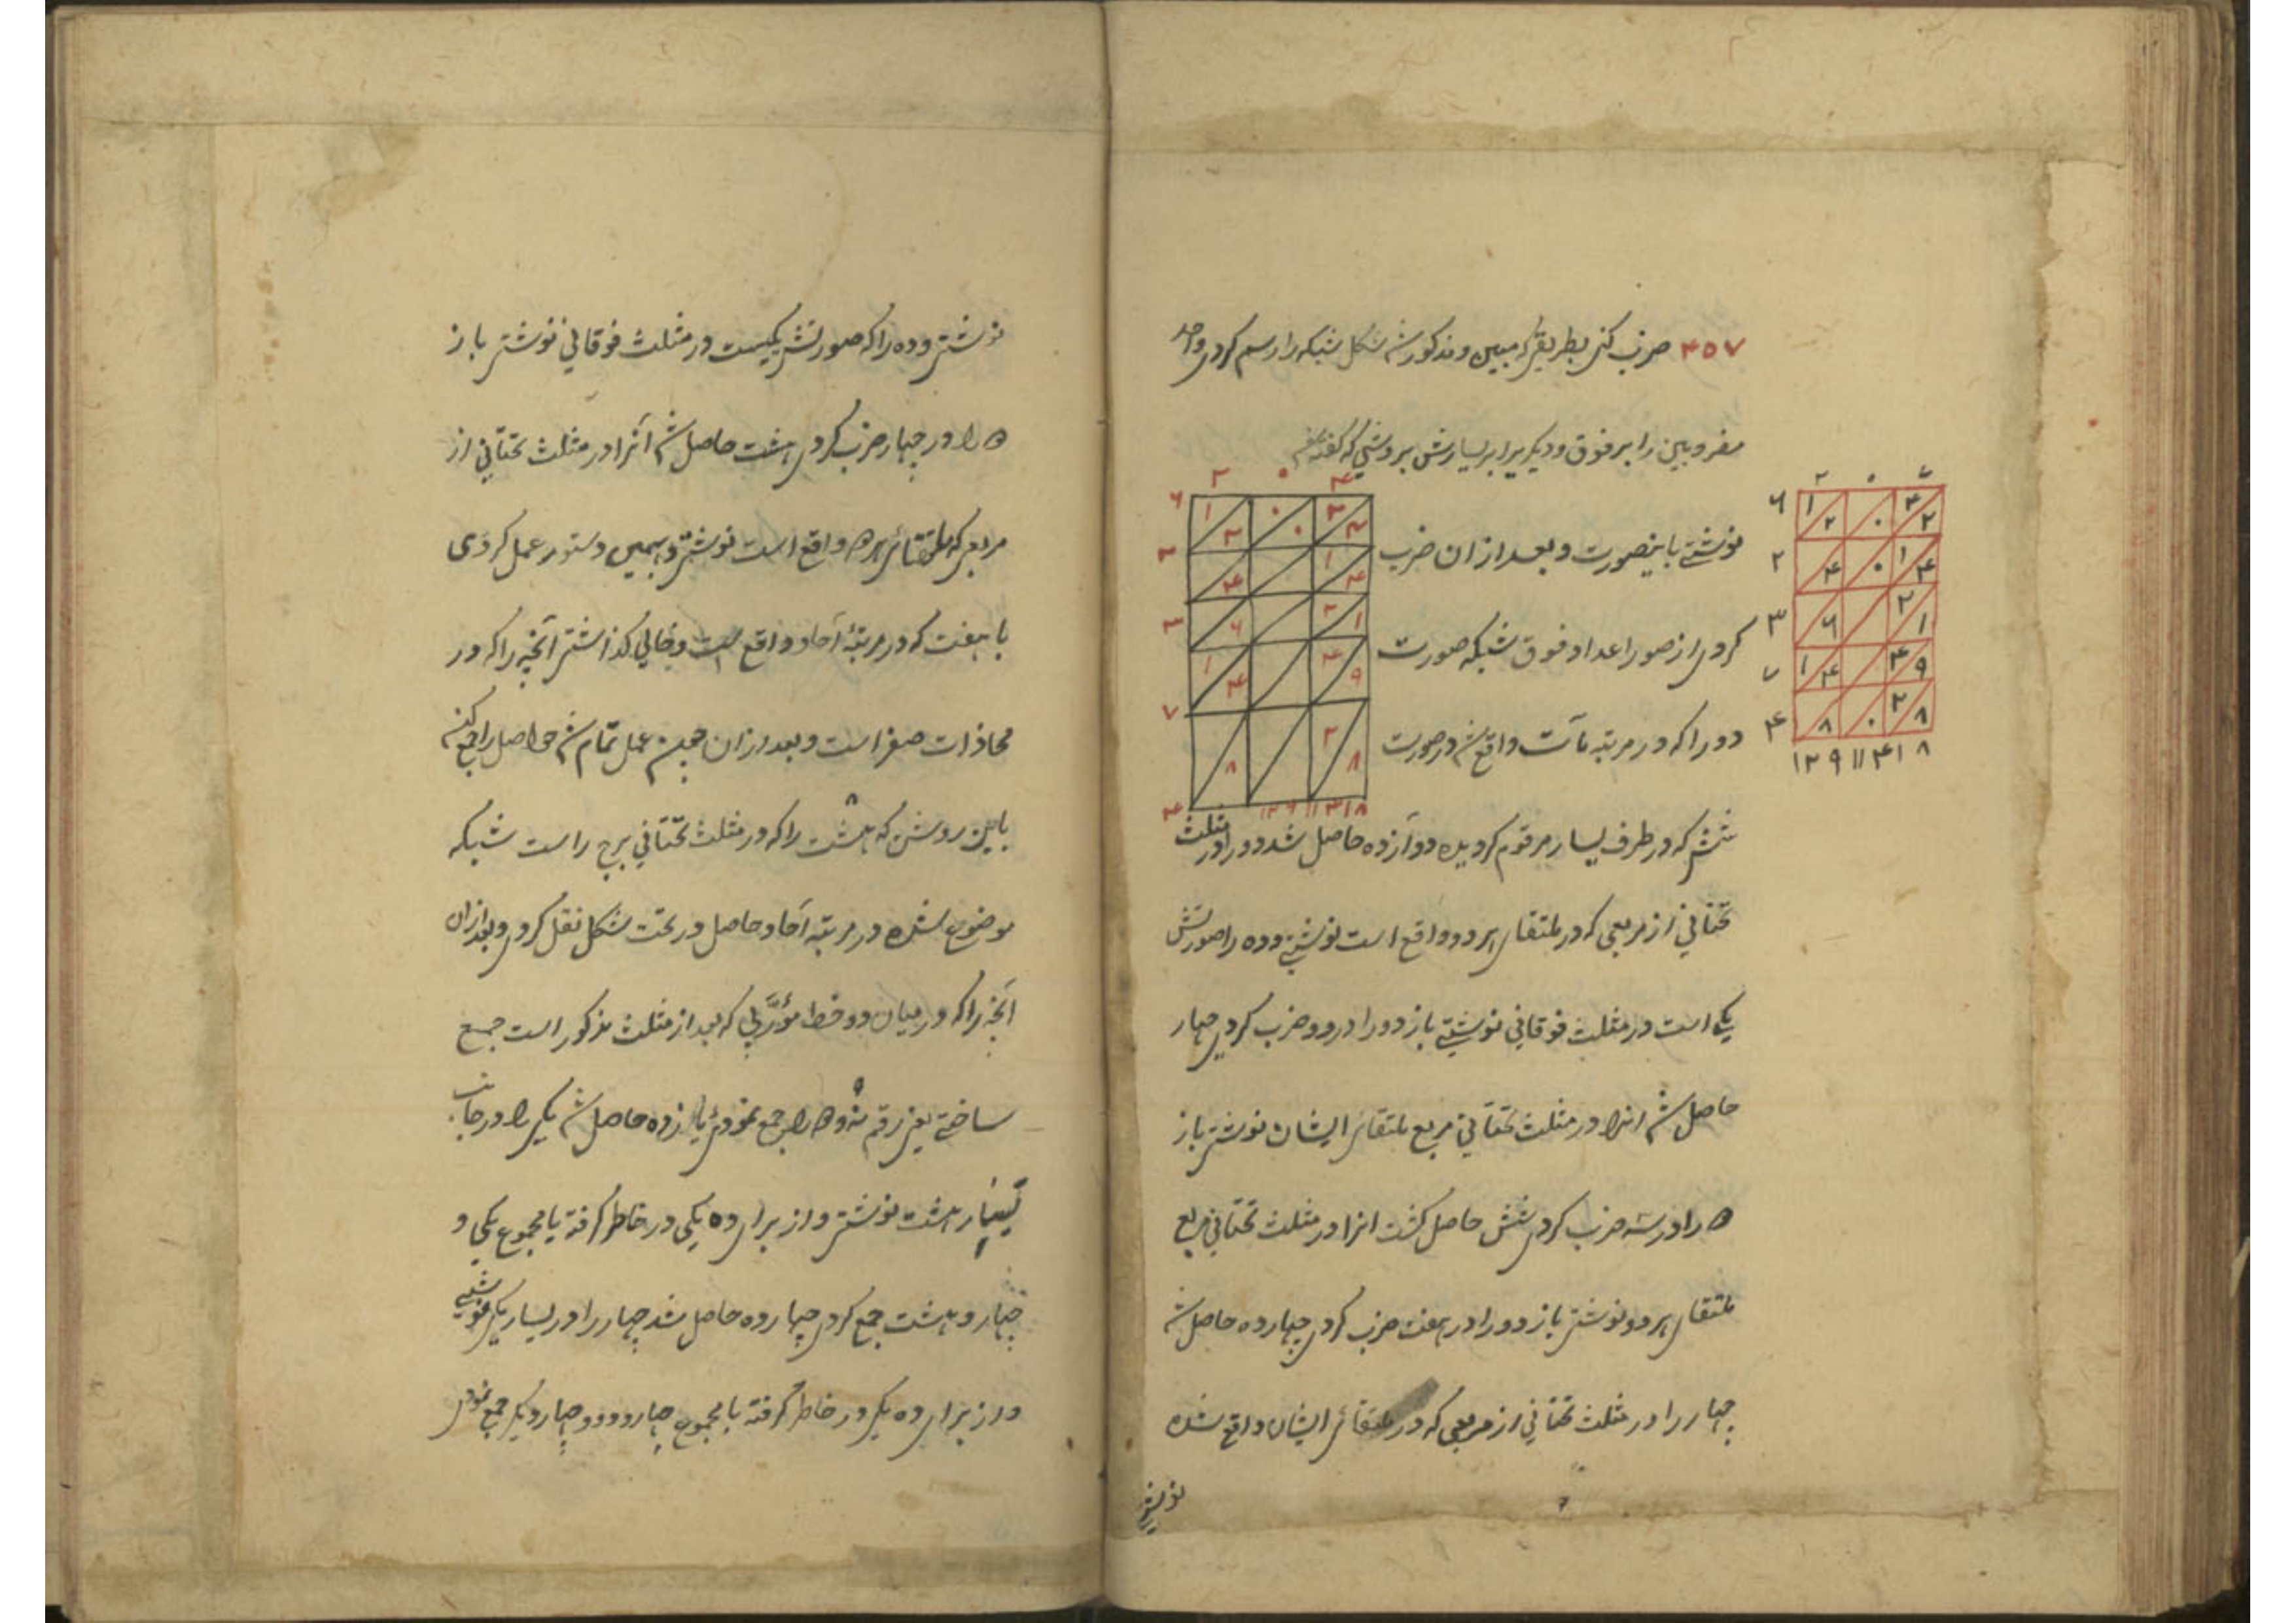 ۴۵۷ ضرب کنی بطریقی که مبین و مذکور شد شکل شبکه را رسم کردی واحد
مضروبین را بر فوق و دیگر برابر یسارش بروشی که گفته شد
۲ ۰ ۷
۶ ۱ ۲ ۰ ۴ ۲
۲ ۴ ۰ ۱ ۴
۳ ۶ ۲ ۱
۷ ۱ ۴ ۴ ۹
۴ ۸ ۰ ۲ ۸
۱۲۹۱۱۴۱۸
نوشتی باینصورت و بعد از ان ضرب
کردی از صور اعداد فوق شبکه صورت
دو را که در مرتبه مآت واقع شد در صورت
شش که در طرف یسار مرقوم گردیده دوآزده حاصل شد دو را در مثلث
تحتانی از مربعی که در ملتقای هر دو واقع است نوشتی و ده را صورتش
یکی است در مثلث فوقانی نوشتی باز دو را در دو ضرب کردی چهار
حاصل شد انرا در مثلث تحتانی مربع ملتقای ایشان نوشتی باز
را در سه ضرب کردی شش حاصل گشت انرا در مثلث تحتانی مربع
ملتقای هر دو نوشتی باز دو را در هفت ضرب کردی چهارده حاصل شد
چهار را در مثلث تحتانی از مربعی که در ملتقائی ایشان واقع شده
نوشتی
نوشتی و ده را که صورتش یکیست در مثلث فوقانی نوشتی باز
را در چهار ضرب کردی هشت حاصل شد آنرا در مثلث تحتانی از
مربعی که ملتقائی هر واقع است نوشتی و بهمین دستور عمل کردی
با هفت که در مرتبهٔ آحاد واقع است و خالی گذاشتی آنچه را که در
محاذات صفر است و بعد از ان عمل تمام شد حواصل را جمع کنی
باین روش که هشت را که در مثلث تحتانی راست شبکه
موضوع شده در مرتبه آحاد حاصل در تحت شکل نقل کردی و بعد از ان
آنچه را که در میان دو خط مؤرّبی که بعد از مثلث مذکور است جمع
ساختی یعنی رقم نه و را جمع نمودی یازده حاصل شد یکی را در جانب
یسار هشت نوشتی و از برای ده یکی در خاطر گرفته با مجموع یکی و
چهار و هشت جمع کردی چهارده حاصل شد چهار را در یسار یکی نوشتی
و از برای ده یکی در خاطر گرفته با مجموع چهار و دو و چهار دیگر جمع نمودی